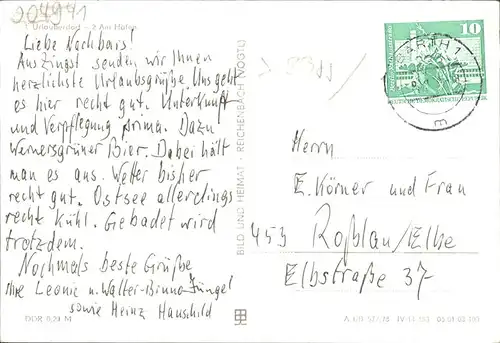 204941
Urlauberdorf - 2 Am Hafen
Liebe Nachbars!
Aus Zingst senden wir Ihnen
herzlichste Urlaubsgrüße Uns geht
es hier recht gut. Unterkunft
und Verpflegung prima. Dazu
Wernersgrüner Bier. Dabei hält
man es aus. Wetter bisher
recht gut. Ostsee allerdings
recht kühl. Gebadet wird
trotzdem.
Nochmals beste Grüße
Ihre Leonie u. Walter-Bruno Jüngel
sowie Heinz Hauschild
DDR 0,20 M
BILD UND HEIMAT · REICHENBACH (VOGTL)
10
BARTH 1
Herrn
E. Körner und Frau
453 Roßlau/Elbe
Elbstraße 37